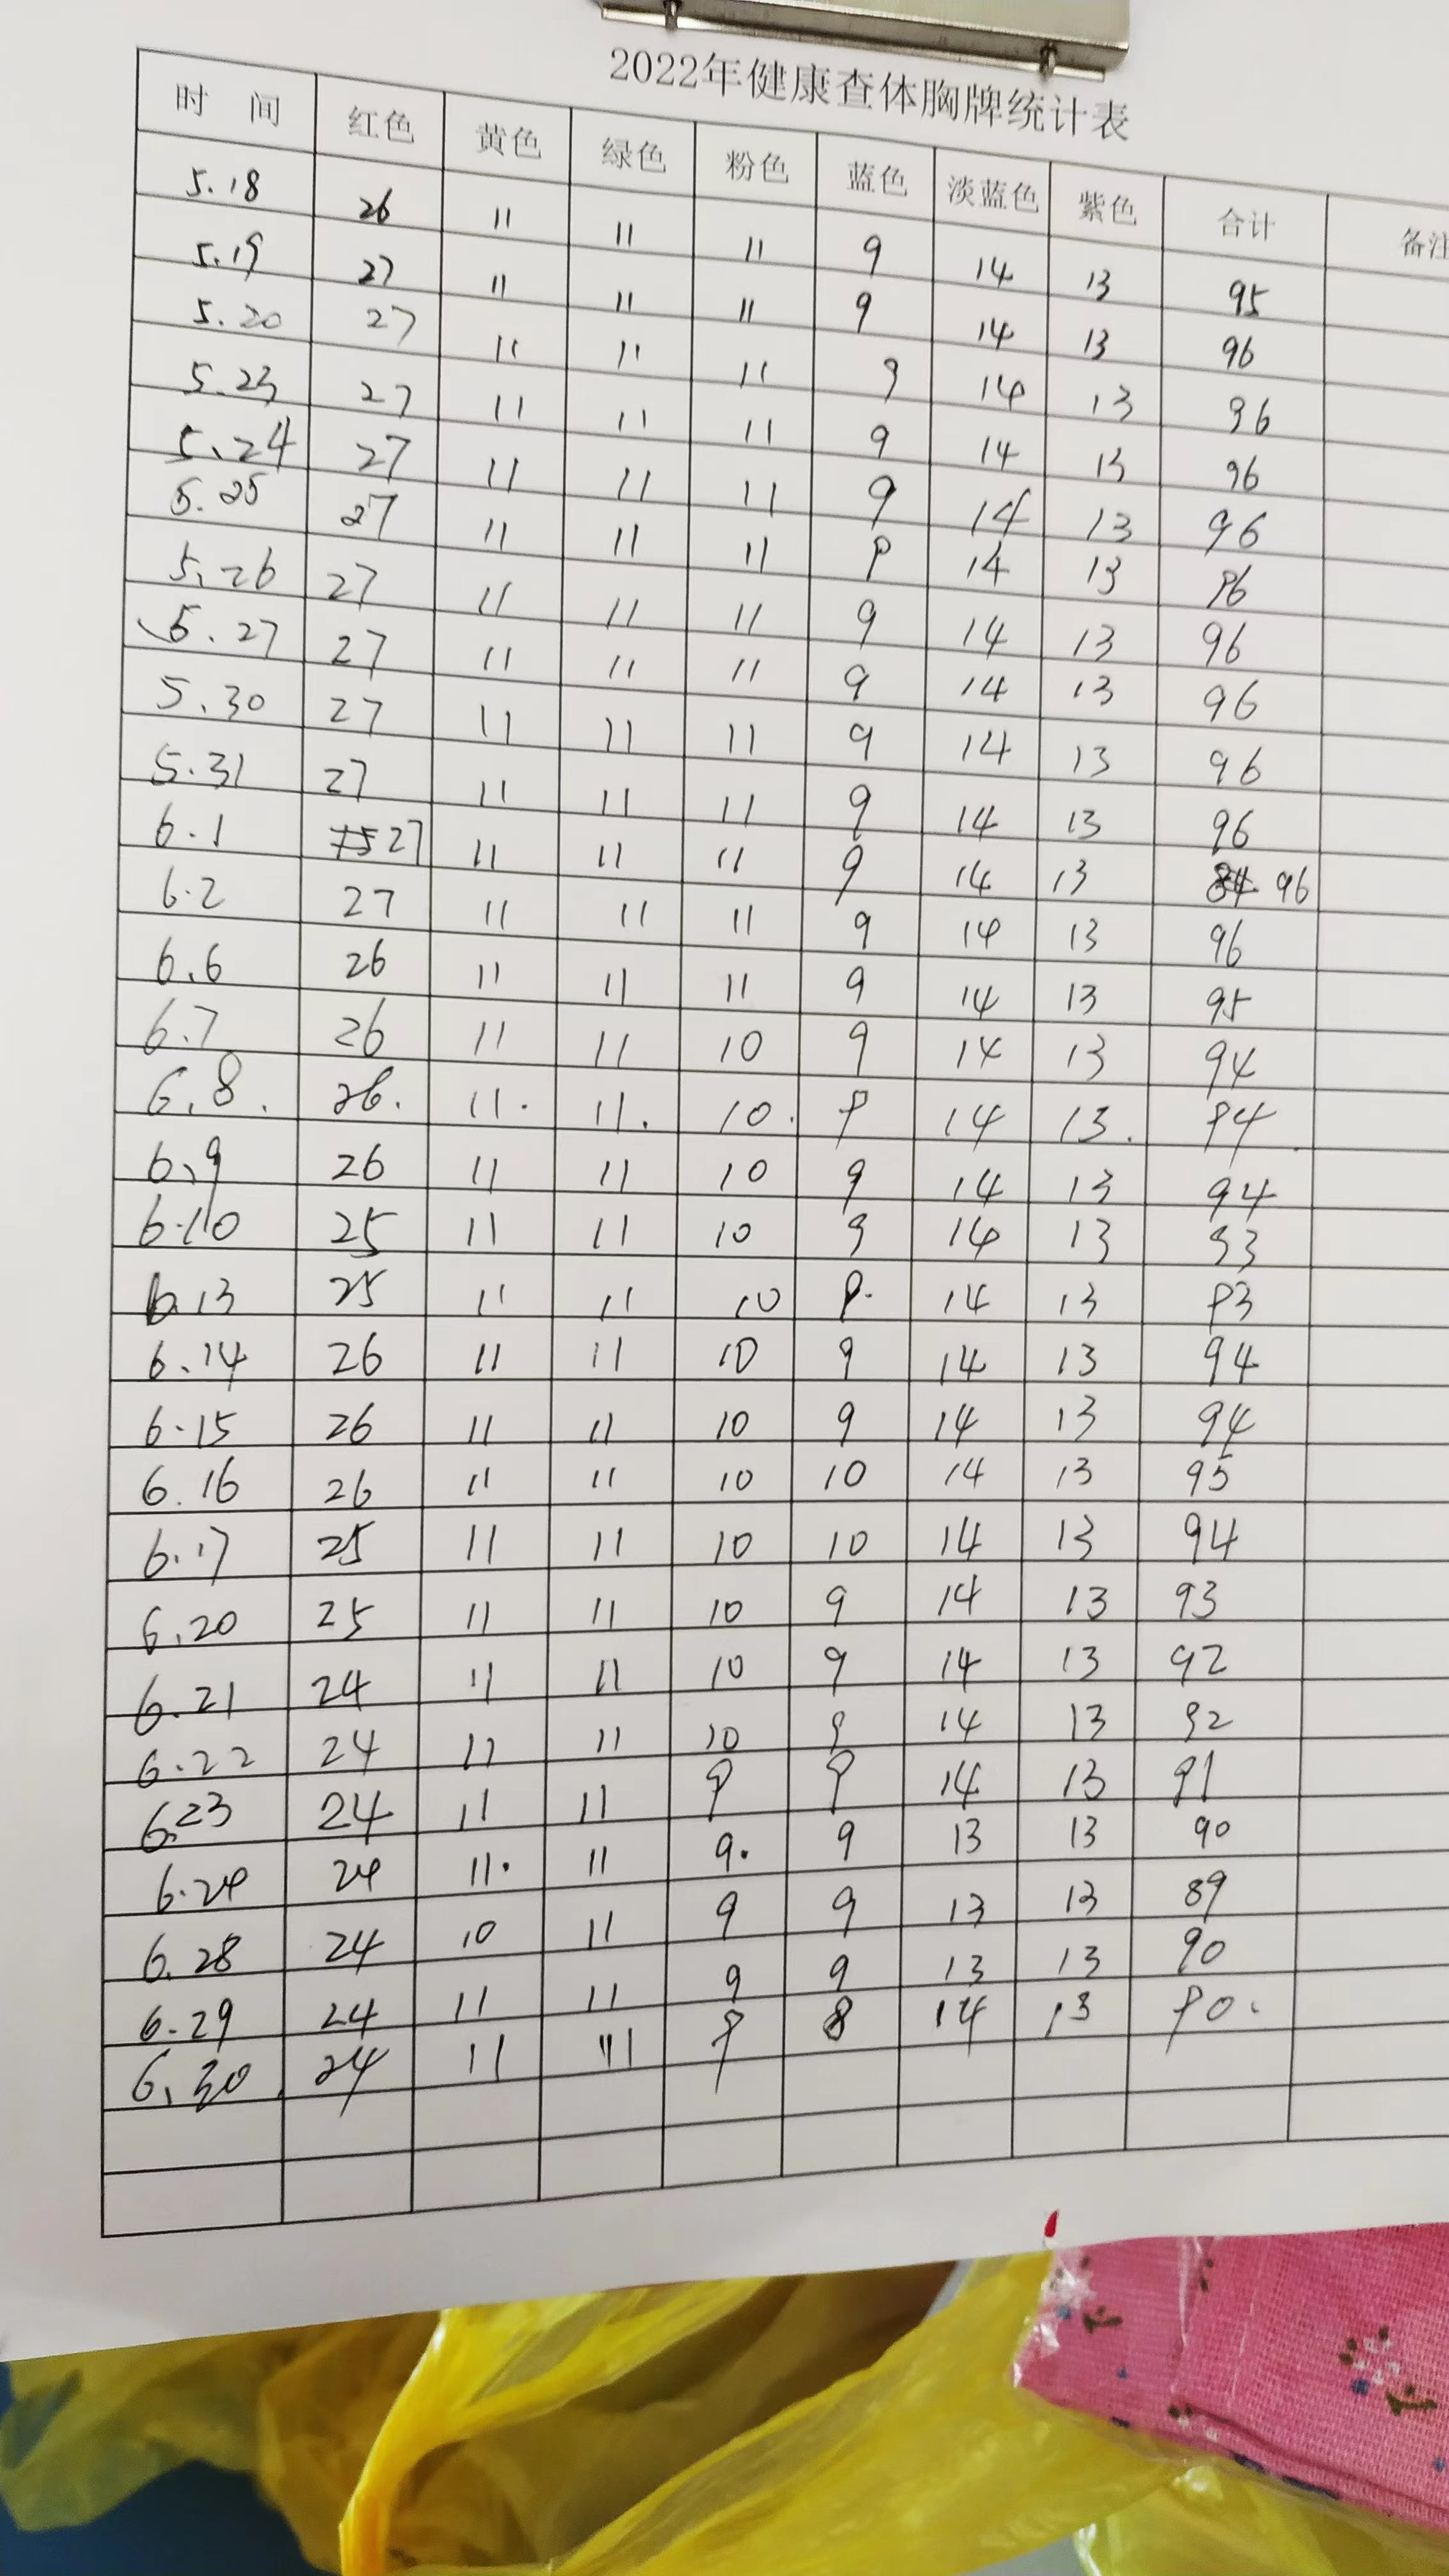 2022年健康查体胸牌统计表
时 间 红色 黄色 绿色 粉色 蓝色 淡蓝色 紫色 合计 备注
5.18 26 11 11 11 9 14 13 95
5.19 27 11 11 11 9 14 13 96
5.20 27 11 11 11 9 14 13 96
5.23 27 11 11 11 9 14 13 96
5.24 27 11 11 11 9 14 13 96
5.25 27 11 11 11 9 14 13 96
5.26 27 11 11 11 9 14 13 96
5.27 27 11 11 11 9 14 13 96
5.30 27 11 11 11 9 14 13 96
5.31 27 11 11 11 9 14 13 96
6.1 27 11 11 11 9 14 13 96
6.2 27 11 11 11 9 14 13 96
6.6 26 11 11 11 9 14 13 95
6.7 26 11 11 10 9 14 13 94
6.8. 26. 11. 11. 10. 9 14 13. 94.
6.9 26 11 11 10 9 14 13 94
6.10 25 11 11 10 9 14 13 93
6.13 25 11 11 10 9. 14 13 93
6.14 26 11 11 10 9 14 13 94
6.15 26 11 11 10 9 14 13 94
6.16 26 11 11 10 10 14 13 95
6.17 25 11 11 10 10 14 13 94
6.20 25 11 11 10 9 14 13 93
6.21 24 11 11 10 9 14 13 92
6.22 24 11 11 10 9 14 13 92
6.23 24 11 11 9 9 14 13 91
6.24 24 11. 11 9. 9 13 13 90
6.28 24 10 11 9 9 13 13 89
6.29 24 11 11 9 9 13 13 90
6.30 24 11 11 9 8 14 13 90.